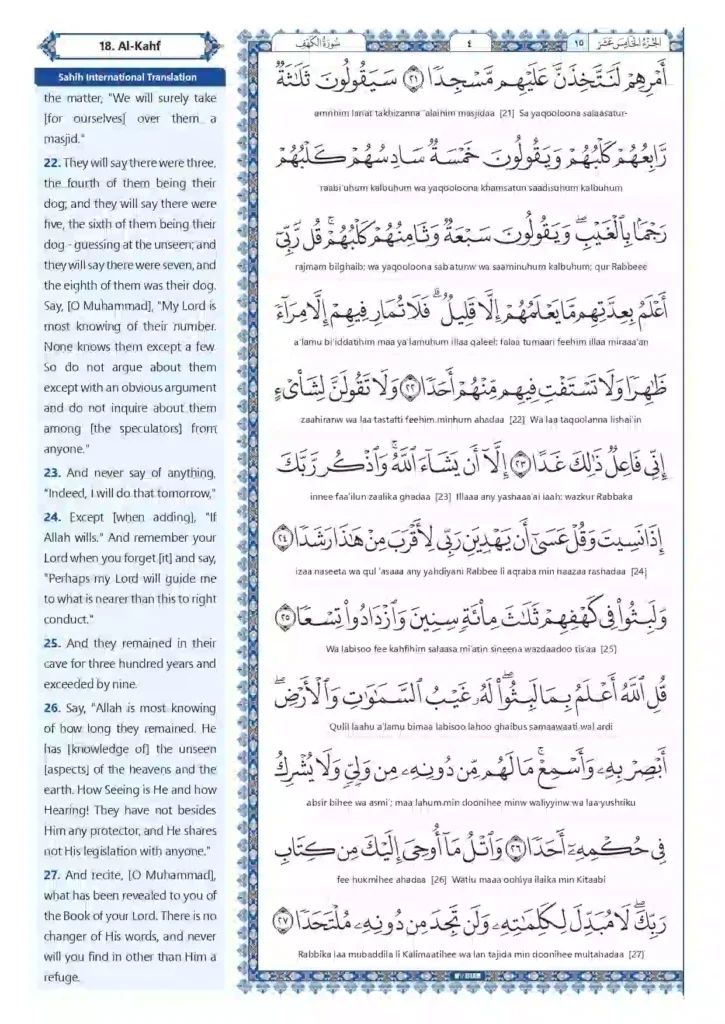 18. Al-Kahf
Sahih International Translation
the matter, "We will surely take
[for ourselves] over them a
masjid."
22. They will say there were three,
the fourth of them being their
dog; and they will say there were
five, the sixth of them being their
dog - guessing at the unseen; and
they will say there were seven, and
the eighth of them was their dog.
Say, [O Muhammad], "My Lord is
most knowing of their number.
None knows them except a few.
So do not argue about them
except with an obvious argument
and do not inquire about them
among [the speculators] from
anyone."
23. And never say of anything,
"Indeed, I will do that tomorrow,"
24. Except [when adding], "If
Allah wills." And remember your
Lord when you forget [it] and say,
"Perhaps my Lord will guide me
to what is nearer than this to right
conduct."
25. And they remained in their
cave for three hundred years and
exceeded by nine.
26. Say, "Allah is most knowing
of how long they remained. He
has [knowledge of] the unseen
[aspects] of the heavens and the
earth. How Seeing is He and how
Hearing! They have not besides
Him any protector, and He shares
not His legislation with anyone."
27. And recite, [O Muhammad],
what has been revealed to you of
the Book of your Lord. There is no
changer of His words, and never
will you find in other than Him a
refuge.
الجزء الخامس عشر ١٥ ٤ سورة الكهف
أَمْرِهِمْ لَنَتَّخِذَنَّ عَلَيْهِم مَّسْجِدًا ٢١ سَيَقُولُونَ ثَلَاثَةٌ
amrihim lanat takhizanna 'alaihim masjidaa [21] Sa yaqooloona salaasatur-
رَّابِعُهُمْ كَلْبُهُمْ وَيَقُولُونَ خَمْسَةٌ سَادِسُهُمْ كَلْبُهُمْ
raabi'uhum kalbuhum wa yaqooloona khamsatun saadisuhum kalbuhum
رَجْمًا بِالْغَيْبِ ۖ وَيَقُولُونَ سَبْعَةٌ وَثَامِنُهُمْ كَلْبُهُمْ ۚ قُل رَّبِّي
rajmam bilghaib; wa yaqooloona sab'atunw wa saaminuhum kalbuhum; qur Rabbeee
أَعْلَمُ بِعِدَّتِهِم مَّا يَعْلَمُهُمْ إِلَّا قَلِيلٌ ۗ فَلَا تُمَارِ فِيهِمْ إِلَّا مِرَاءً
a'lamu bi'iddatihim maa ya'lamuhum illaa qaleel; falaa tumaari feehim illaa miraaa'an
ظَاهِرًا وَلَا تَسْتَفْتِ فِيهِم مِّنْهُمْ أَحَدًا ٢٢ وَلَا تَقُولَنَّ لِشَايْءٍ
zaahiranw wa laa tastafti feehim minhum ahadaa [22] Wa laa taqoolanna lishai'in
إِنِّي فَاعِلٌ ذَٰلِكَ غَدًا ٢٣ إِلَّا أَن يَشَاءَ اللَّهُ ۚ وَاذْكُر رَّبَّكَ
innee faa'ilun zaalika ghadaa [23] Illaaa any yashaaa'al laah; wazkur Rabbaka
إِذَا نَسِيتَ وَقُلْ عَسَىٰ أَن يَهْدِيَنِ رَبِّي لِأَقْرَبَ مِنْ هَٰذَا رَشَدًا ٢٤
izaa naseeta wa qul 'asaaa any yahdiyani Rabbee li aqraba min haazaa rashadaa [24]
وَلَبِثُوا فِي كَهْفِهِمْ ثَلَاثَ مِائَةٍ سِنِينَ وَازْدَادُوا تِسْعًا ٢٥
Wa labisoo fee kahfihim salaasa mi'atin sineena wazdaadoo tis'aa [25]
قُلِ اللَّهُ أَعْلَمُ بِمَا لَبِثُوا ۖ لَهُ غَيْبُ السَّمَاوَاتِ وَالْأَرْضِ ۖ
Qulil laahu a'lamu bimaa labisoo lahoo ghaibus samaawaati wal ardi
أَبْصِرْ بِهِ وَأَسْمِعْ ۚ مَا لَهُم مِّن دُونِهِ مِن وَلِيٍّ وَلَا يُشْرِكُ
absir bihee wa asmi'; maa lahum min doonihee minw waliyyinw wa laa yushriku
فِي حُكْمِهِ أَحَدًا ٢٦ وَاتْلُ مَا أُوحِيَ إِلَيْكَ مِن كِتَابِ
fee hukmihee ahadaa [26] Watlu maaa oohiya ilaika min Kitaabi
رَبِّكَ ۖ لَا مُبَدِّلَ لِكَلِمَاتِهِ وَلَن تَجِدَ مِن دُونِهِ مُلْتَحَدًا ٢٧
Rabbika laa mubaddila li Kalimaatihee wa lan tajida min doonihee multahadaa [27]